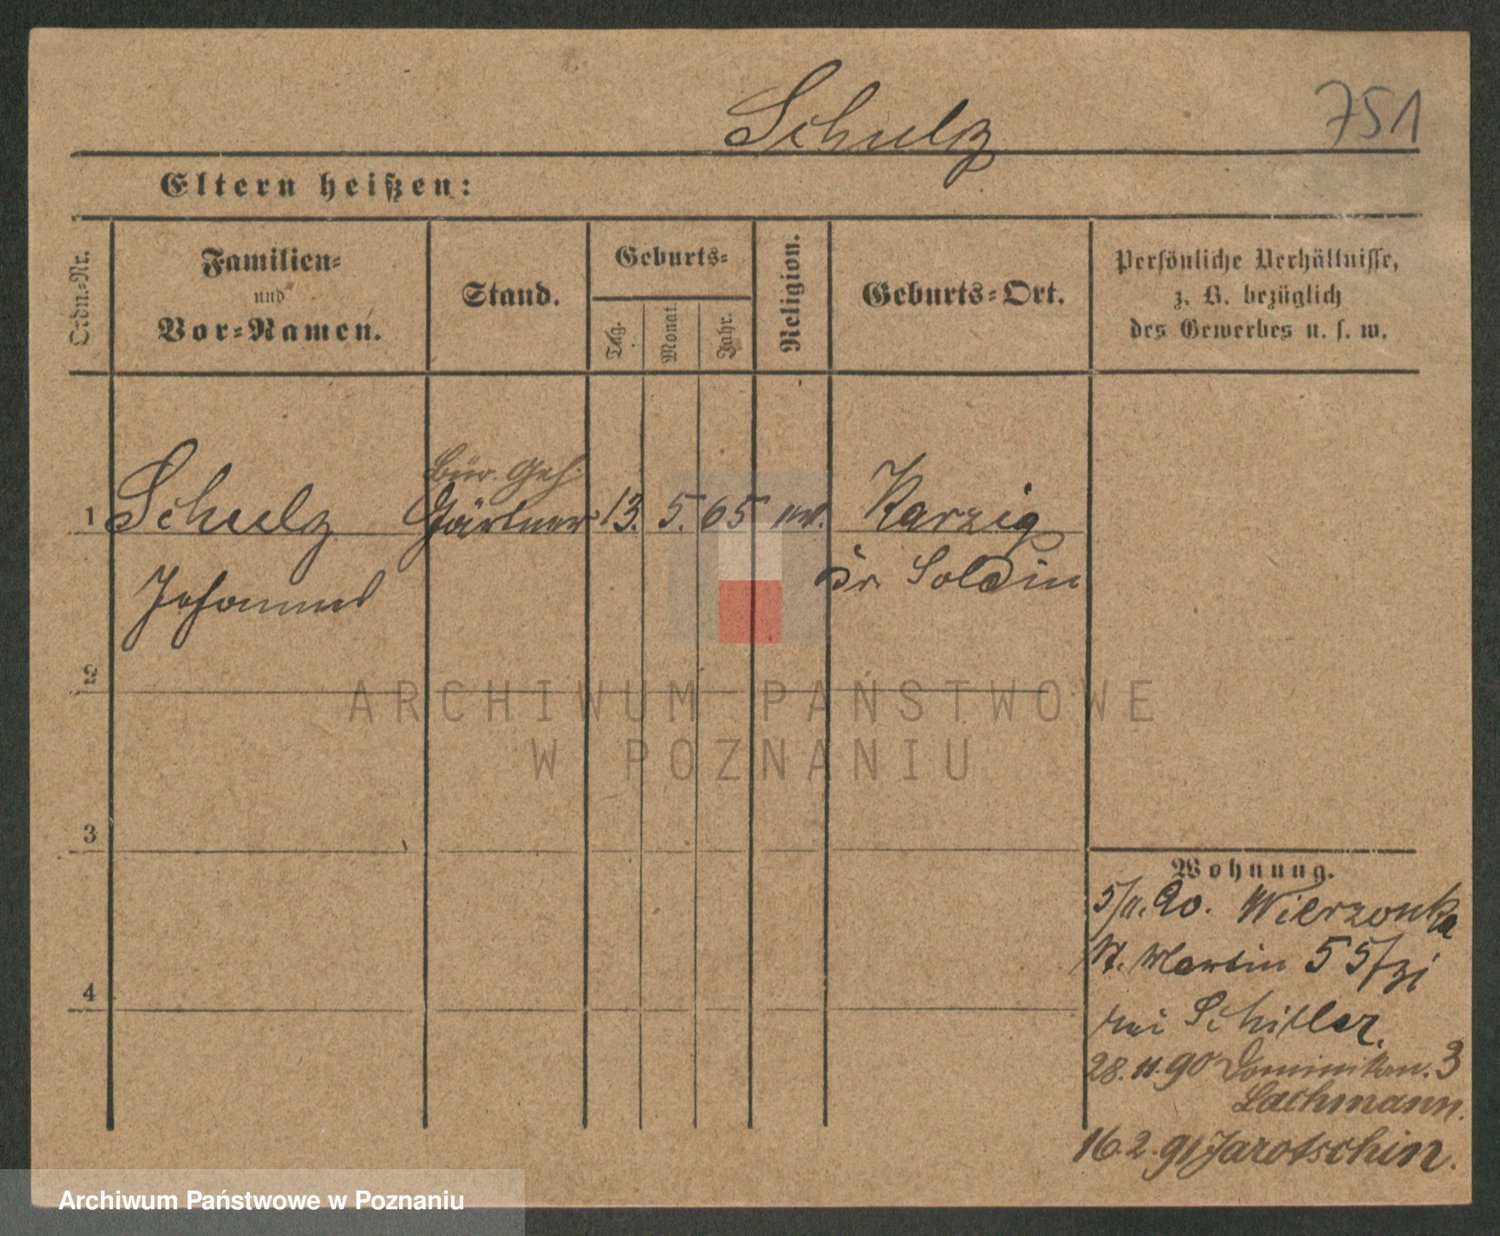 Schulz
751
Eltern heißen:
Ordn.-Nr.
Familien-
und
Vor-Namen.
Stand.
Geburts-
Tag.
Monat.
Jahr.
Religion.
Geburts-Ort.
Persönliche Verhältnisse,
z. B. bezüglich
des Gewerbes u. s. w.
Bür. Geh.
1 Schulz Gärtner 13. 5. 65 ev. Karzig
Johannes Kr. Soldin
2
3
4
Wohnung.
5/11. 90. Wierzonka
St. Martin 55/
bei Schiller.
28.11.90 Dominikan. 3
Lachmann.
16.2.91 Jarotschin.
ARCHIWUM PAŃSTWOWE
W POZNANIU
Archiwum Państwowe w Poznaniu